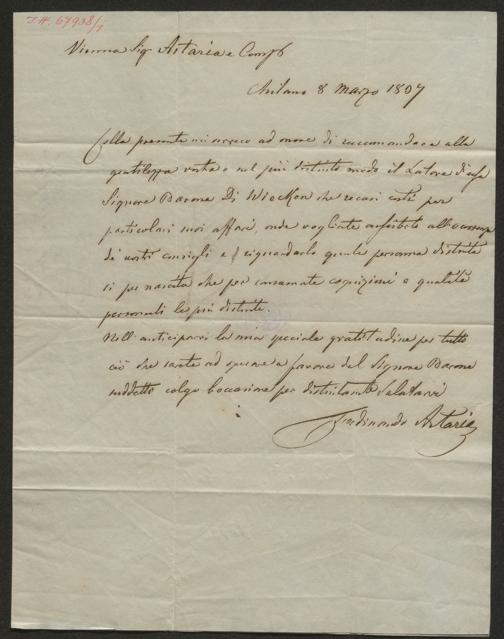 I.N. 67938/1
Vienna Sigri Artaria e Compi
Milano 8 Marzo 1807
Colla presente mi reco ad onore di raccomandare alla
gentilezza vostra e nel più distinto modo il Latore di essa
Signore Barone Di che recasi costì per
particolari suoi affari, onde vogliate assisterlo all'occorrenza
de' vostri consigli e riguardarlo quale persona distinta
si per nascita che per consumate cognizioni e qualità
personali le più distinte.
Nell' anticiparvi la mia speciale gratitudine per tutto
ciò che sarete ad operare a favore del Signore Barone
suddetto colgo l'occasione per distintamte Salutarvi
Ferdinando Artaria